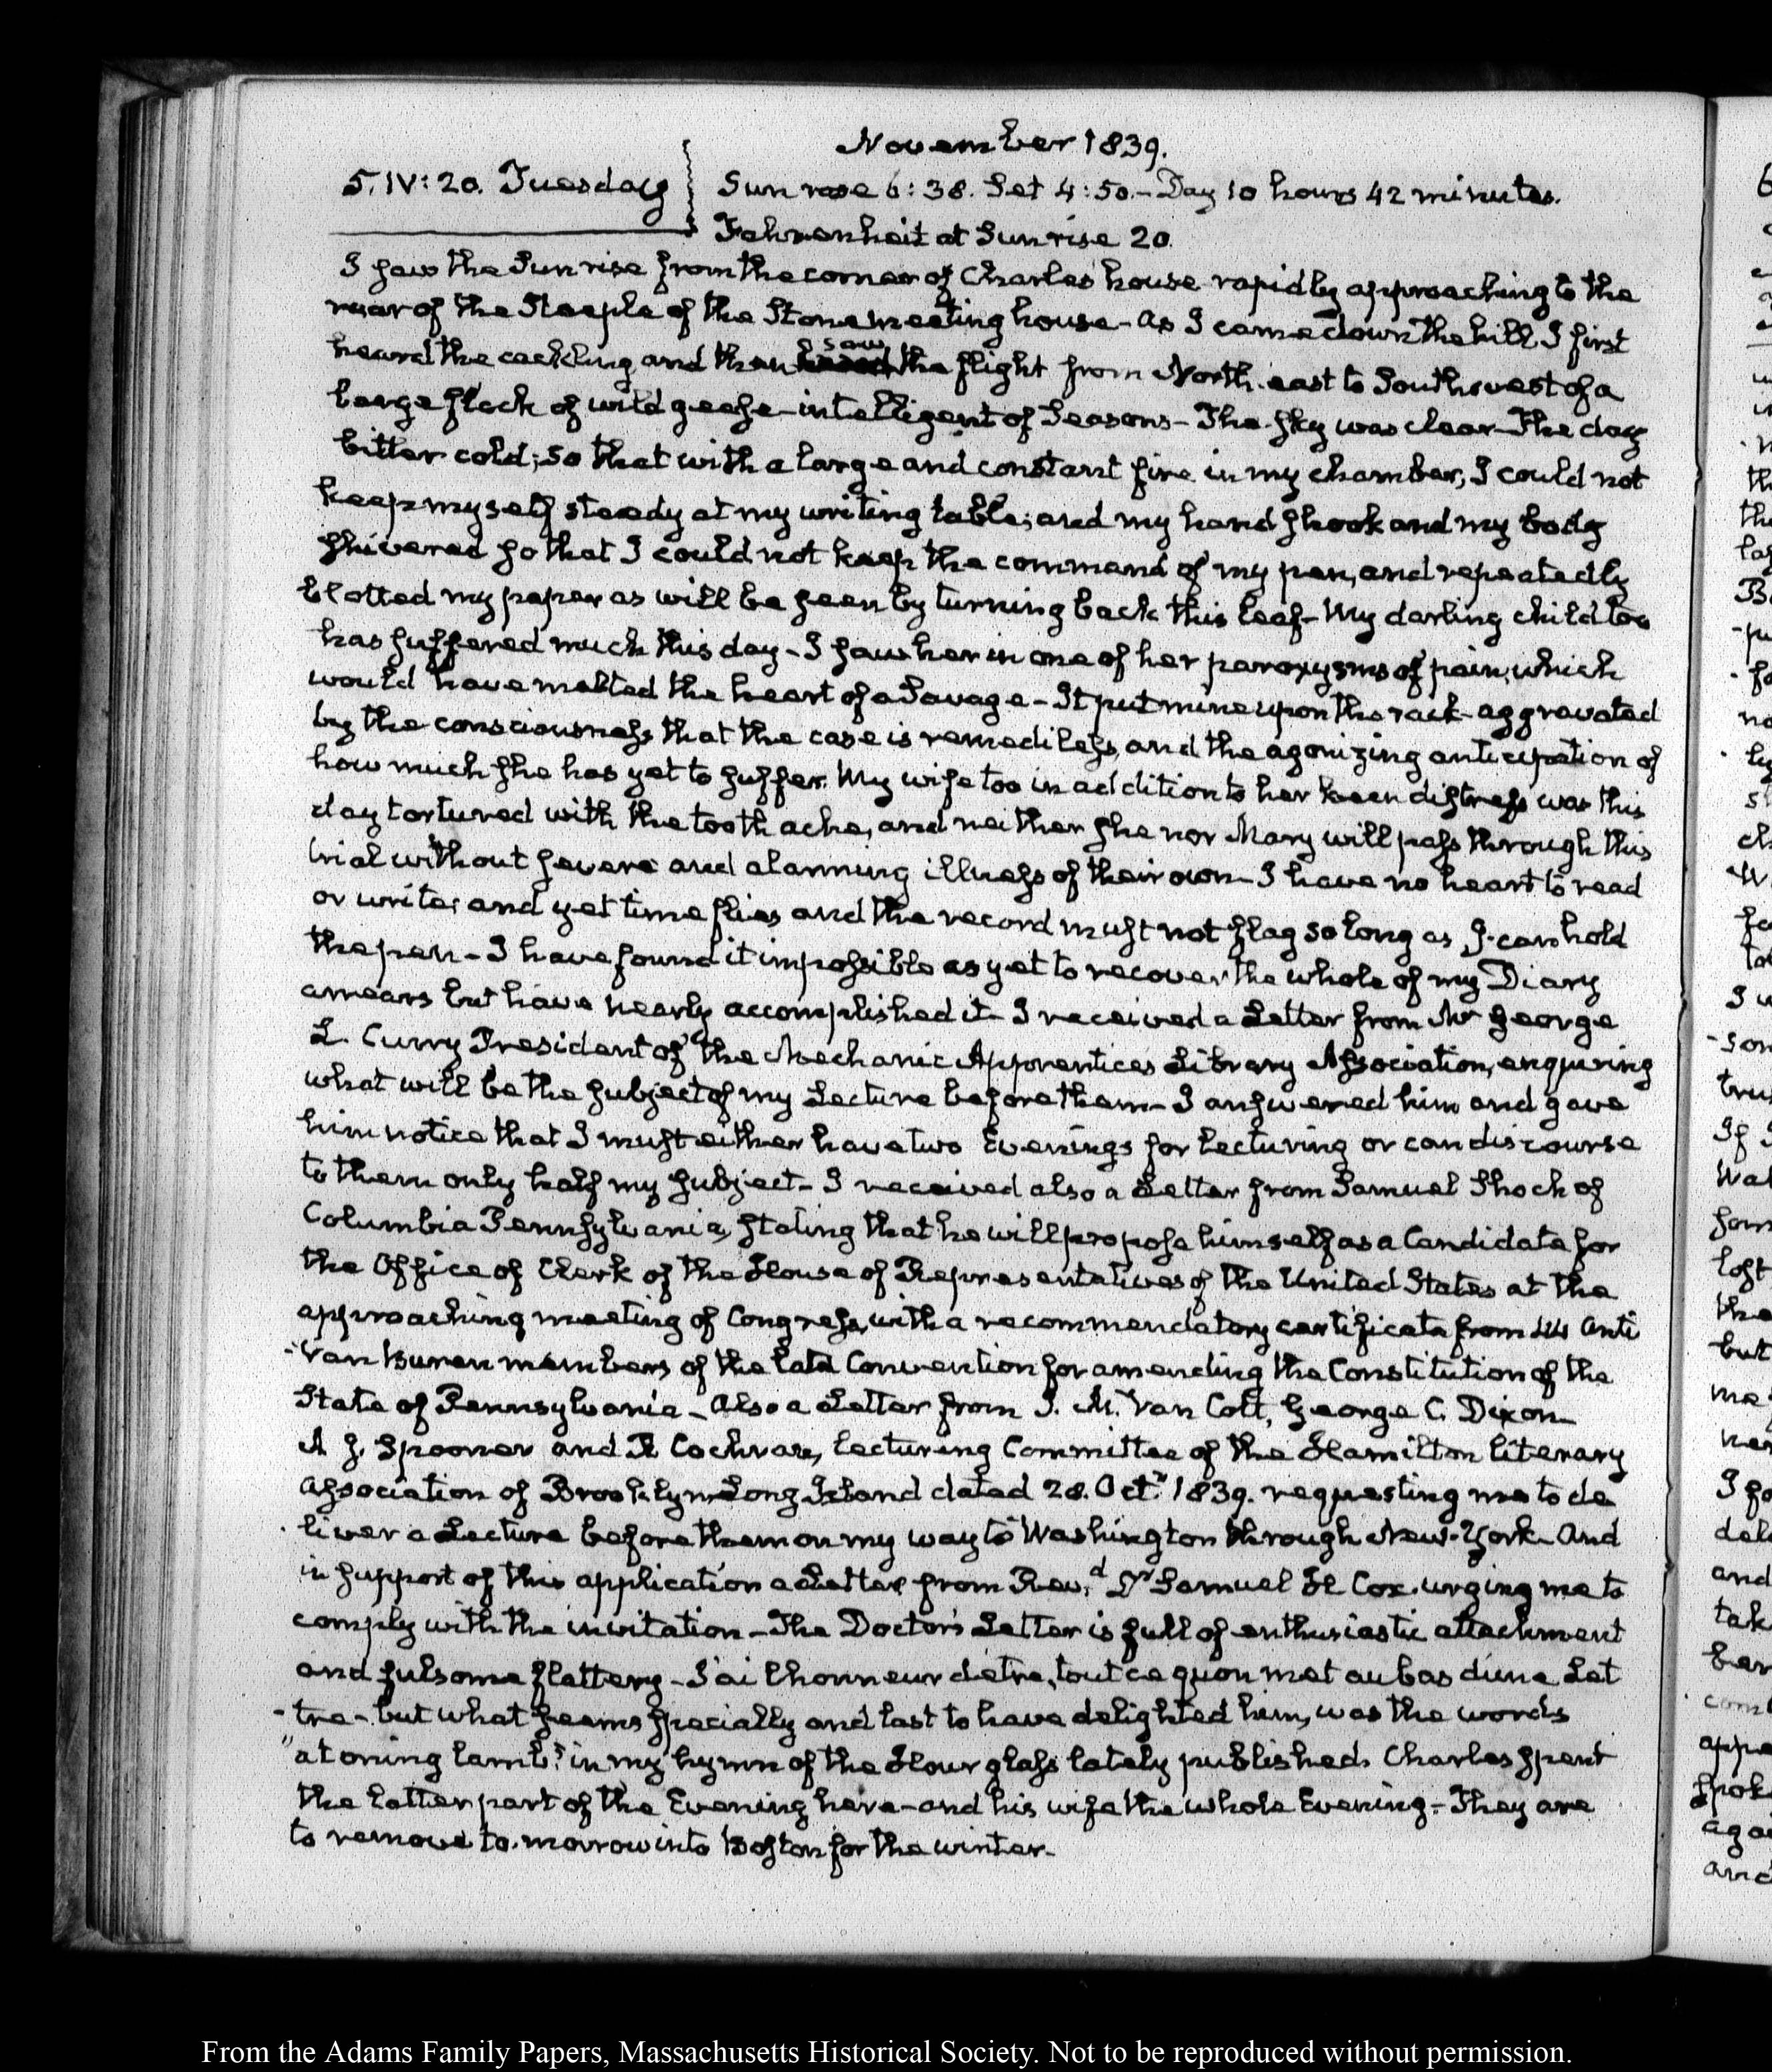 November 1839.
5. IV: 20. Tuesday
Sun rose 6:38. Set 4:50.- Day 10 hours 42 minutes.
Fahrenheit at Sunrise 20.
I saw the Sun rise from the corner of Charles' house rapidly approaching to the
rear of the Steeple of the Stone meeting house- As I came down the hill, I first
heard the cackling and then saw the flight from North-east to Southwest of a
large flock of wild geese- intelligent of Seasons- The sky was clear- The day
bitter cold; so that with a large and constant fire in my chamber, I could not
keep myself steady at my writing table; and my hand shook and my body
shivered so that I could not keep the command of my pen, and repeatedly
blotted my paper as will be seen by turning back this leaf- My darling child too
has suffered much this day- I saw her in one of her paroxysms of pain, which
would have melted the heart of a Savage- It put mine upon the rack- aggravated
by the consciousness that the case is remediless, and the agonizing anticipation of
how much she has yet to suffer. My wife too in addition to her keen distress was this
day tortured with the tooth ache, and neither she nor Mary will pass through this
trial without severe and alarming illness of their own- I have no heart to read
or write; and yet time flies and the record must not flag so long as I can hold
the pen- I have found it impossible as yet to recover the whole of my Diary
arrears but have nearly accomplished it- I received a Letter from Mr George
L. Curry President of the Mechanic Apprentices Library Association, enquiring
what will be the subject of my Lecture before them- I answered him and gave
him notice that I must either have two Evenings for lecturing or can discourse
to them only half my subject- I received also a Letter from Samuel Shock of
Columbia Pennsylvania, stating that he will propose himself as a Candidate for
the Office of Clerk of the House of Representatives of the United States at the
approaching meeting of Congress, with a recommendatory certificate from anti
-Van Buren members of the late Convention for amending the Constitution of the
State of Pennsylvania- Also a Letter from J. M. Van Cott, George C. Dixon
A J. Spooner and R Cochran, lecturing Committee of the Hamilton literary
association of Brooklyn Long Island dated 28. Octr 1839. requesting me to de
-liver a Lecture before them on my way to Washington through New-York- And
in support of this application a Letter from Revd Dr Samuel H Cox urging me to
comply with the invitation- The Doctor's Letter is full of enthusiastic attachment
and fulsome flattery- J'ai l'honneur detre, tout ce quon met au bas dune Let
-tre- but what seems specially and last to have delighted him, was the words
"atoning lamb" in my hymn of the Hour glass lately published. Charles spent
the latter part of the Evening here- and his wife the whole Evening- They are
to remove to-morrow into Boston for the winter-
From the Adams Family Papers, Massachusetts Historical Society. Not to be reproduced without permission.